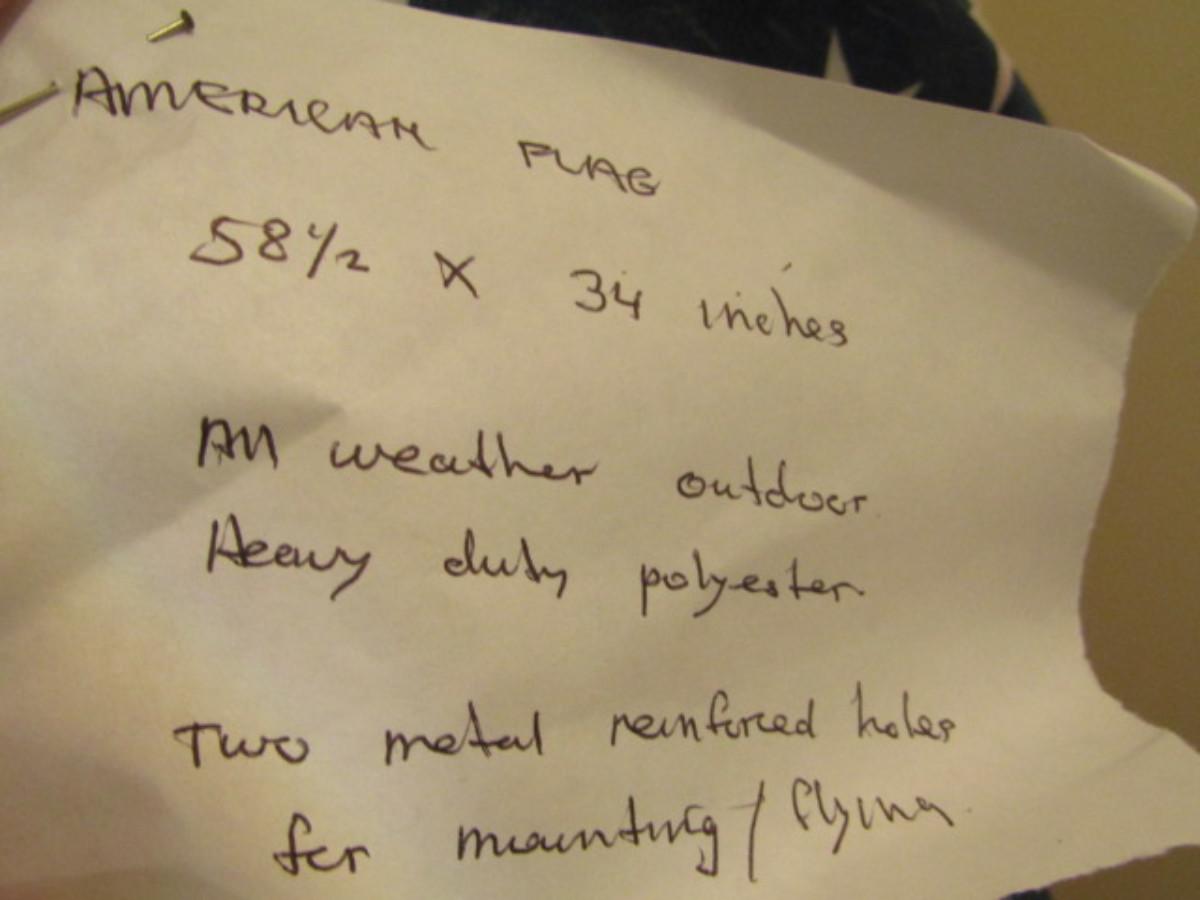 AMERICAN FLAG
58 1/2 X 34 inches
All weather outdoor
Heavy duty polyester
Two metal reinforced holes
for mounting / flying